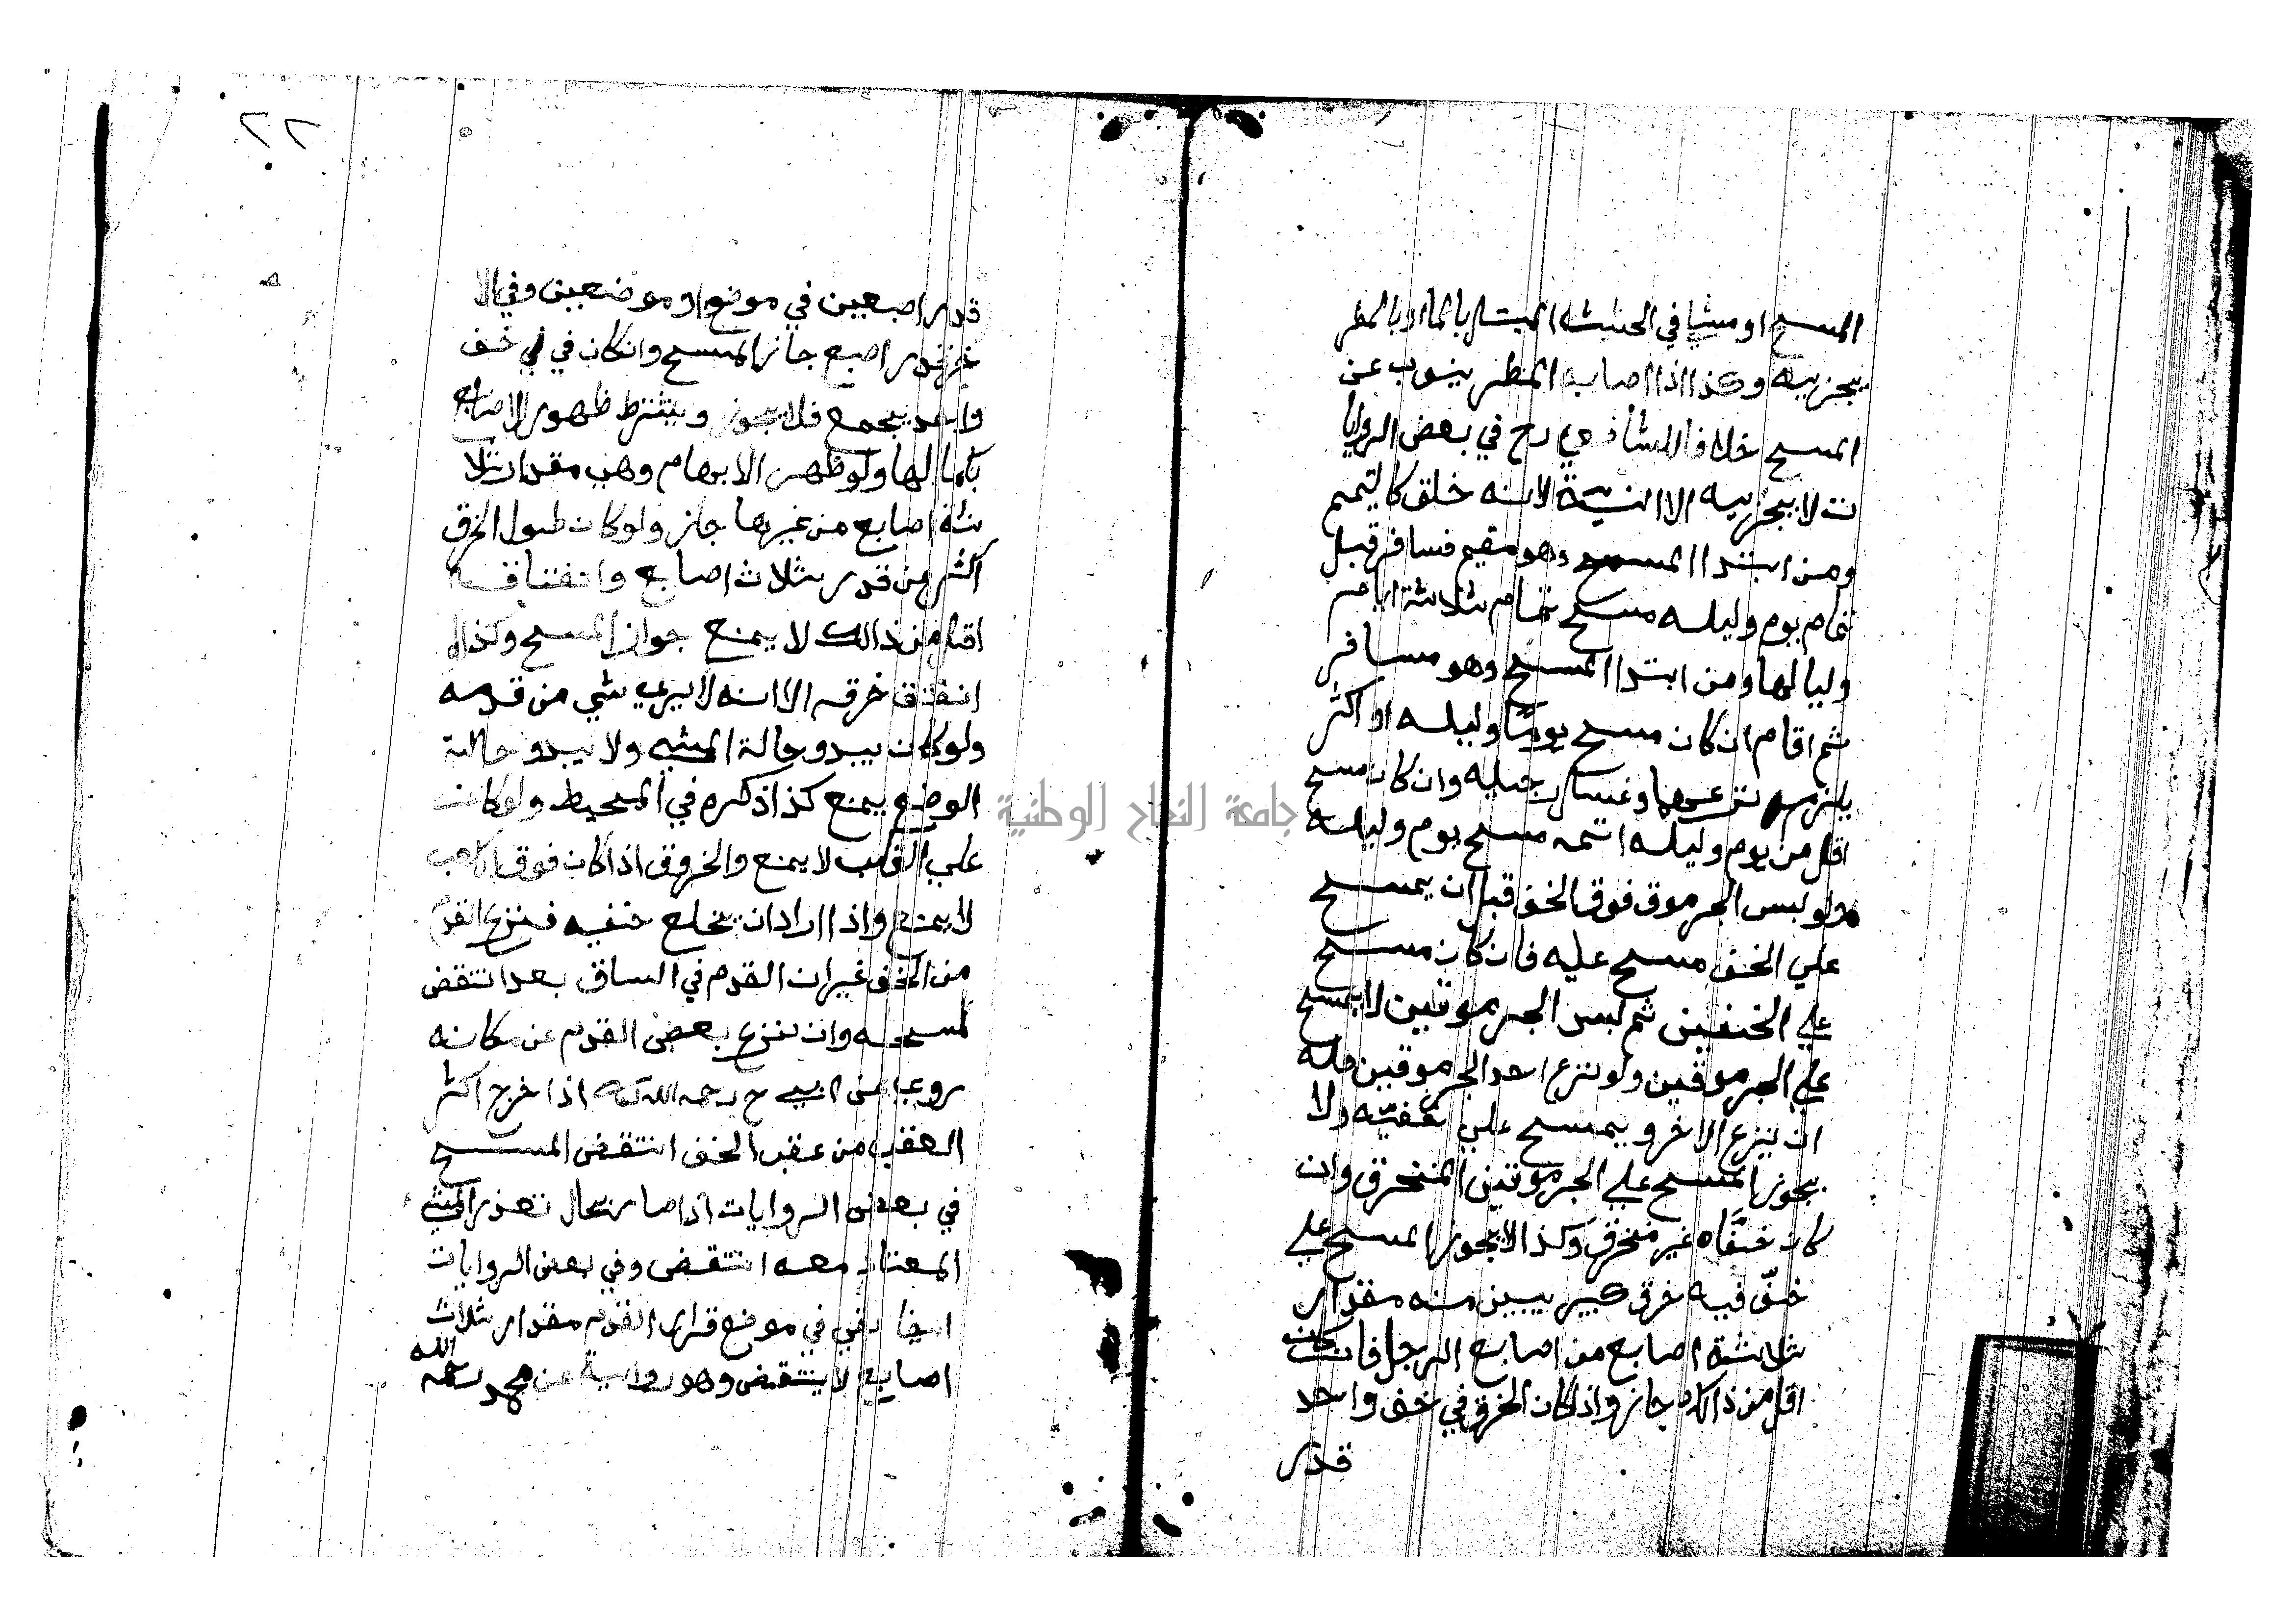 المسح او مشا في الحشيش المبتل بالماء او بالمطر
يجزيه وكذا اذا اصابه المطر ينوب عن
المسح خلافا للشافعي رح في بعض الروايا
ت لا يجزيه الا النية لانه خلف كالتيمم
ومن ابتدا المسح وهو مقيم فسافر قبل
تمام يوم وليله مسح تمام ثلاثة ايام
وليالها ومن ابتدا المسح وهو مسافر
ثم اقام ان كان مسح يوما وليله او اكثر
يلزمه نزعهما وغسل رجليه وان كان مسح
اقل من يوم وليله اتمه مسح يوم وليله
ولو لبس الجرموق فوق الخف قبل ان يمسح
علي الخف مسح عليه فان كان مسح
علي الخفين ثم لبس الجرموقين لا يمسح
علي الجرموقين ولو نزع احد الجرموقين فله
ان ينزع الاخر ويمسح علي خفيه ولا
يجوز المسح علي الجرموقين المنخرق وان
كان خفاه غير منخرق وكذا لا يجوز المسح علي
خف فيه خرق كبير يبين منه مقدار
ثلاثة اصابع من اصابع الرجل فان كان
اقل من ذالك جاز واذا كان الخرق في خف واحد
قدر
٢٢
قدر اصبعين في موضع او موضعين وفي الا
خر قدر اصبع جاز المسح وان كان في خف
واحد يجمع فلا يجوز ويشترط ظهور الاصابع
بكمالها ولو ظهر الابهام وهي مقدار ثلا
ثة اصابع من غيرها جاز ولو كان طول الخرق
اكثر من قدر ثلاث اصابع وانفتاقه
اقل من ذالك لا يمنع جواز المسح وكذا
انفتق خرقه الا انه لا يري شي من قدمه
ولو كان يبدو حالة المشي ولا يبدو حالة
الوضع يمنع كذا ذكره في المحيط ولو كان
علي القلب لا يمنع والخروق اذا كان فوق الكعب
لا يمنع واذا اراد ان يخلع خفيه فنزع القدم
من الخف غير ان القدم في الساق بعد انتقض
مسحه وان نزع بعض القدم عن مكانه
روي عن ابي ح رحمه الله انه اذا خرج اكثر
العقب من عقب الخف انتقض المسح
في بعض الروايات اذا صار بحال تعذر المشي
المعتاد معه انتقض وفي بعض الروايات
ايضا بقي في موضع قرار القدم مقدار ثلاث
اصابع لا ينتقض وهو رواية عن محمد رحمه الله
جامعة النجاح الوطنية